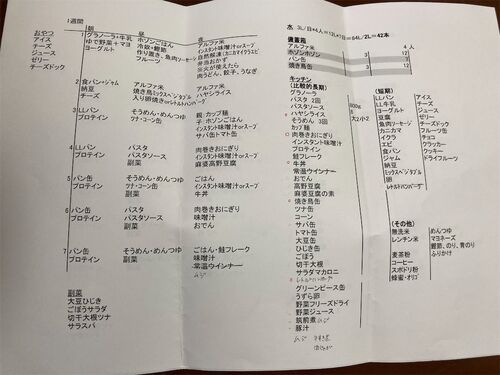 1週間
朝 昼 夜
おやつ
アイス
チーズ
ジュース
ゼリー
チーズドック
1 グラノーラ・牛乳 ホゾンごはん アルファ米
ゆで野菜+マヨ 冷奴+鰹節 インスタント味噌汁orスープ
ヨーグルト 作り置き、魚肉ソーセージ 自然解凍(カニカマイクラエビ
フルーツ 弁当おかず
災火が使えたら
肉うどん、餃子、うなぎ
2 食パン+ジャム アルファ米 アルファ米
納豆 焼き鳥ミックスベジタブル ハヤシライス
チーズ 入り卵焼きorレトルトハンバーグ
3 LLパン そうめん・めんつゆ 親:カップ麺
プロテイン ツナ・コーン缶 子:ホゾンごはん
インスタント味噌汁orスープ
サバ缶トマト缶
4 LLパン パスタ 肉巻きおにぎり
プロテイン パスタソース インスタント味噌汁orスープ
副菜 麻婆高野豆腐
5 パン缶 そうめん・めんつゆ ごはん
プロテイン ツナ・コーン缶 インスタント味噌汁orスープ
副菜 牛丼
6 パン缶 パスタ 肉巻きおにぎり
プロテイン パスタソース 味噌汁
副菜 おでん
7 パン缶 そうめん・めんつゆ ごはん・鮭フレーク
プロテイン 副菜 味噌汁
常温ウインナー
副菜
大豆ひじき
ごぼうサラダ
切干大根ツナ
サラスパ
水 3L/日*4人=12L*7日=84L/2L=42本
備蓄箱
アルファ米 4人
ホゾンホゾン 3 12
パン缶 3 12
焼き鳥缶
キッチン
(比較的長期)
グラノーラ
パスタ 2回
パスタソース
ハヤシライス
そうめん 3回
カップ麺
肉巻きおにぎり
インスタント味噌汁
プロテイン
鮭フレーク
牛丼
常温ウインナー
おでん
高野豆腐
麻婆豆腐の素
焼き鳥缶
ツナ缶
コーン
サバ缶
トマト缶
大豆缶
ひじき
ごぼう
切干大根
サラダマカロニ
レトルトハンバーグ
グリーンピース缶
うずら卵
野菜フリーズドライ
野菜ジュース
筑前煮
豚汁
800g
大2/小2
(短期)
LLパン アイス
LL牛乳 チーズ
豆腐 ジュース
魚肉ソーセージ ゼリー
カニカマ チーズドック
イクラ フルーツ缶
エビ チョコ
食パン クラッカー
ジャム クッキー
納豆 ドライフルーツ
ミックスベジタブル
卵
レトルトハンバーグ
(その他)
無洗米 めんつゆ
レンチン米 マヨネーズ
鰹節、のり、青のり
麦茶粉 ふりかけ
コーヒー
スポドリ粉
蜂蜜・オリゴ